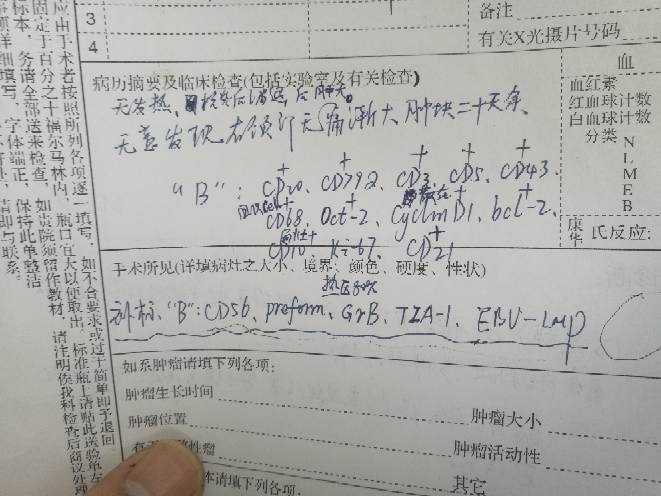 应由于术者按照所列各项逐一填写，如不合要求或过于简单即予退回
固定于百分之十福尔马林内，瓶口宜大以便取出，标准瓶上请贴此送验单左
标本，务请全部送来检查，如贵院须留作教材，请注明俟我科检查后商议处理
详细填写，字体端正，保持此单整洁
请即与联系。
3
4
备注
有关X光摄片号码
病历摘要及临床检查(包括实验室及有关检查)
无发热、
无意发现右颌下无痛渐大肿块二十天余
"B"：CD20、CD79a、CD3、CD5、CD43、
CD68、Oct-2、CyclinD1、bcl-2、
CD10、Ki-67、CD21
血
血红素
红血球计数
白血球计数
分类 N
L
M
E
B
康华氏反应:
手术所见(详填病灶之大小、境界、颜色、硬度、性状)
热区80%
补标、"B"：CD56、preform、GrB、TIA-1、EBV-Lmp
如系肿瘤请填下列各项:
肿瘤生长时间
肿瘤大小
肿瘤位置
肿瘤活动性
本请填下列各项:
其它